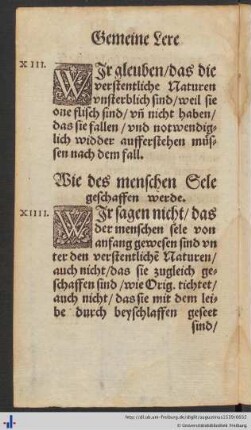 Gemeine Lere
XIII.
WJr gleuben/das die
verstentliche Naturen
vnsterblich sind/weil sie
one flisch sind/vñ nicht haben/
das sie fallen/vnd notwendig-
lich widder aufferstehen müs-
sen nach dem fall.
Wie des menschen Sele
geschaffen werde.
XIIII.
WJr sagen nicht/das
der menschen sele von
anfang gewesen sind vn
ter den verstentlichẽ Naturen/
auch nicht/das sie zugleich ge-
schaffen sind/wie Orig. tichtet/
auch nicht/das sie mit dem lei-
be durch beyschlaffen geseet
sind/
http://dl.ub.uni-freiburg.de/diglit/augustinus1539/0032
© Universitätsbibliothek Freiburg